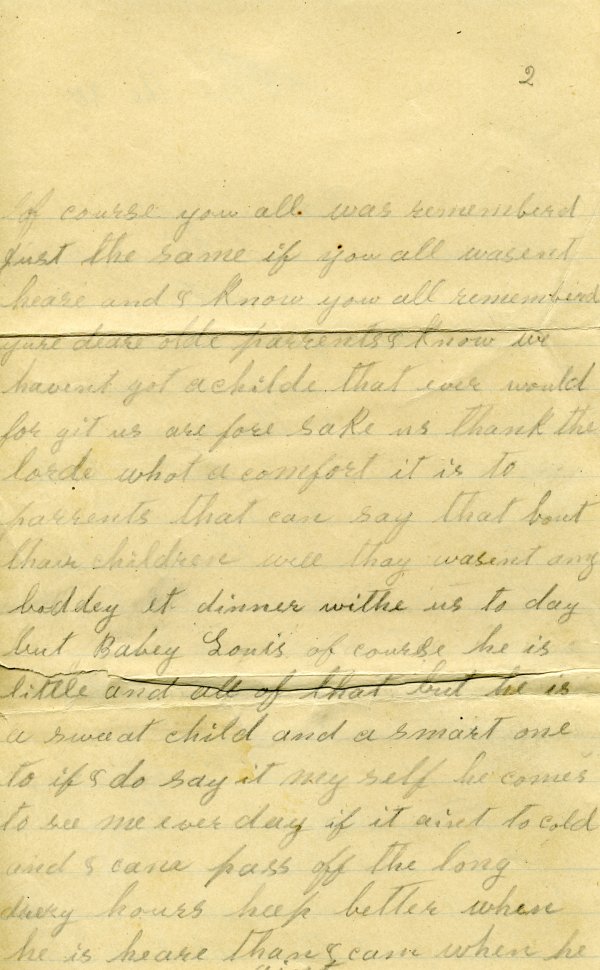 2
Of course you all was rememberd
Just the same if you all wasent
heare and I know you all rememberd
yure deare olde parrents I know we
havent got a childe that ever would
for git us are fore sake us thank the
lorde whot a comfort it is to
parrents that can say that bout
thair children well thay wasent any
boddey et dinner withe us to day
but Babey Louis of course he is
little and all of that but he is
a sweat child and a smart one
to if I do say it mey self he comes
to see me ever day if it aint to cold
and I cane pass off the long
drery hours heep better when
he is heare than I cam when he